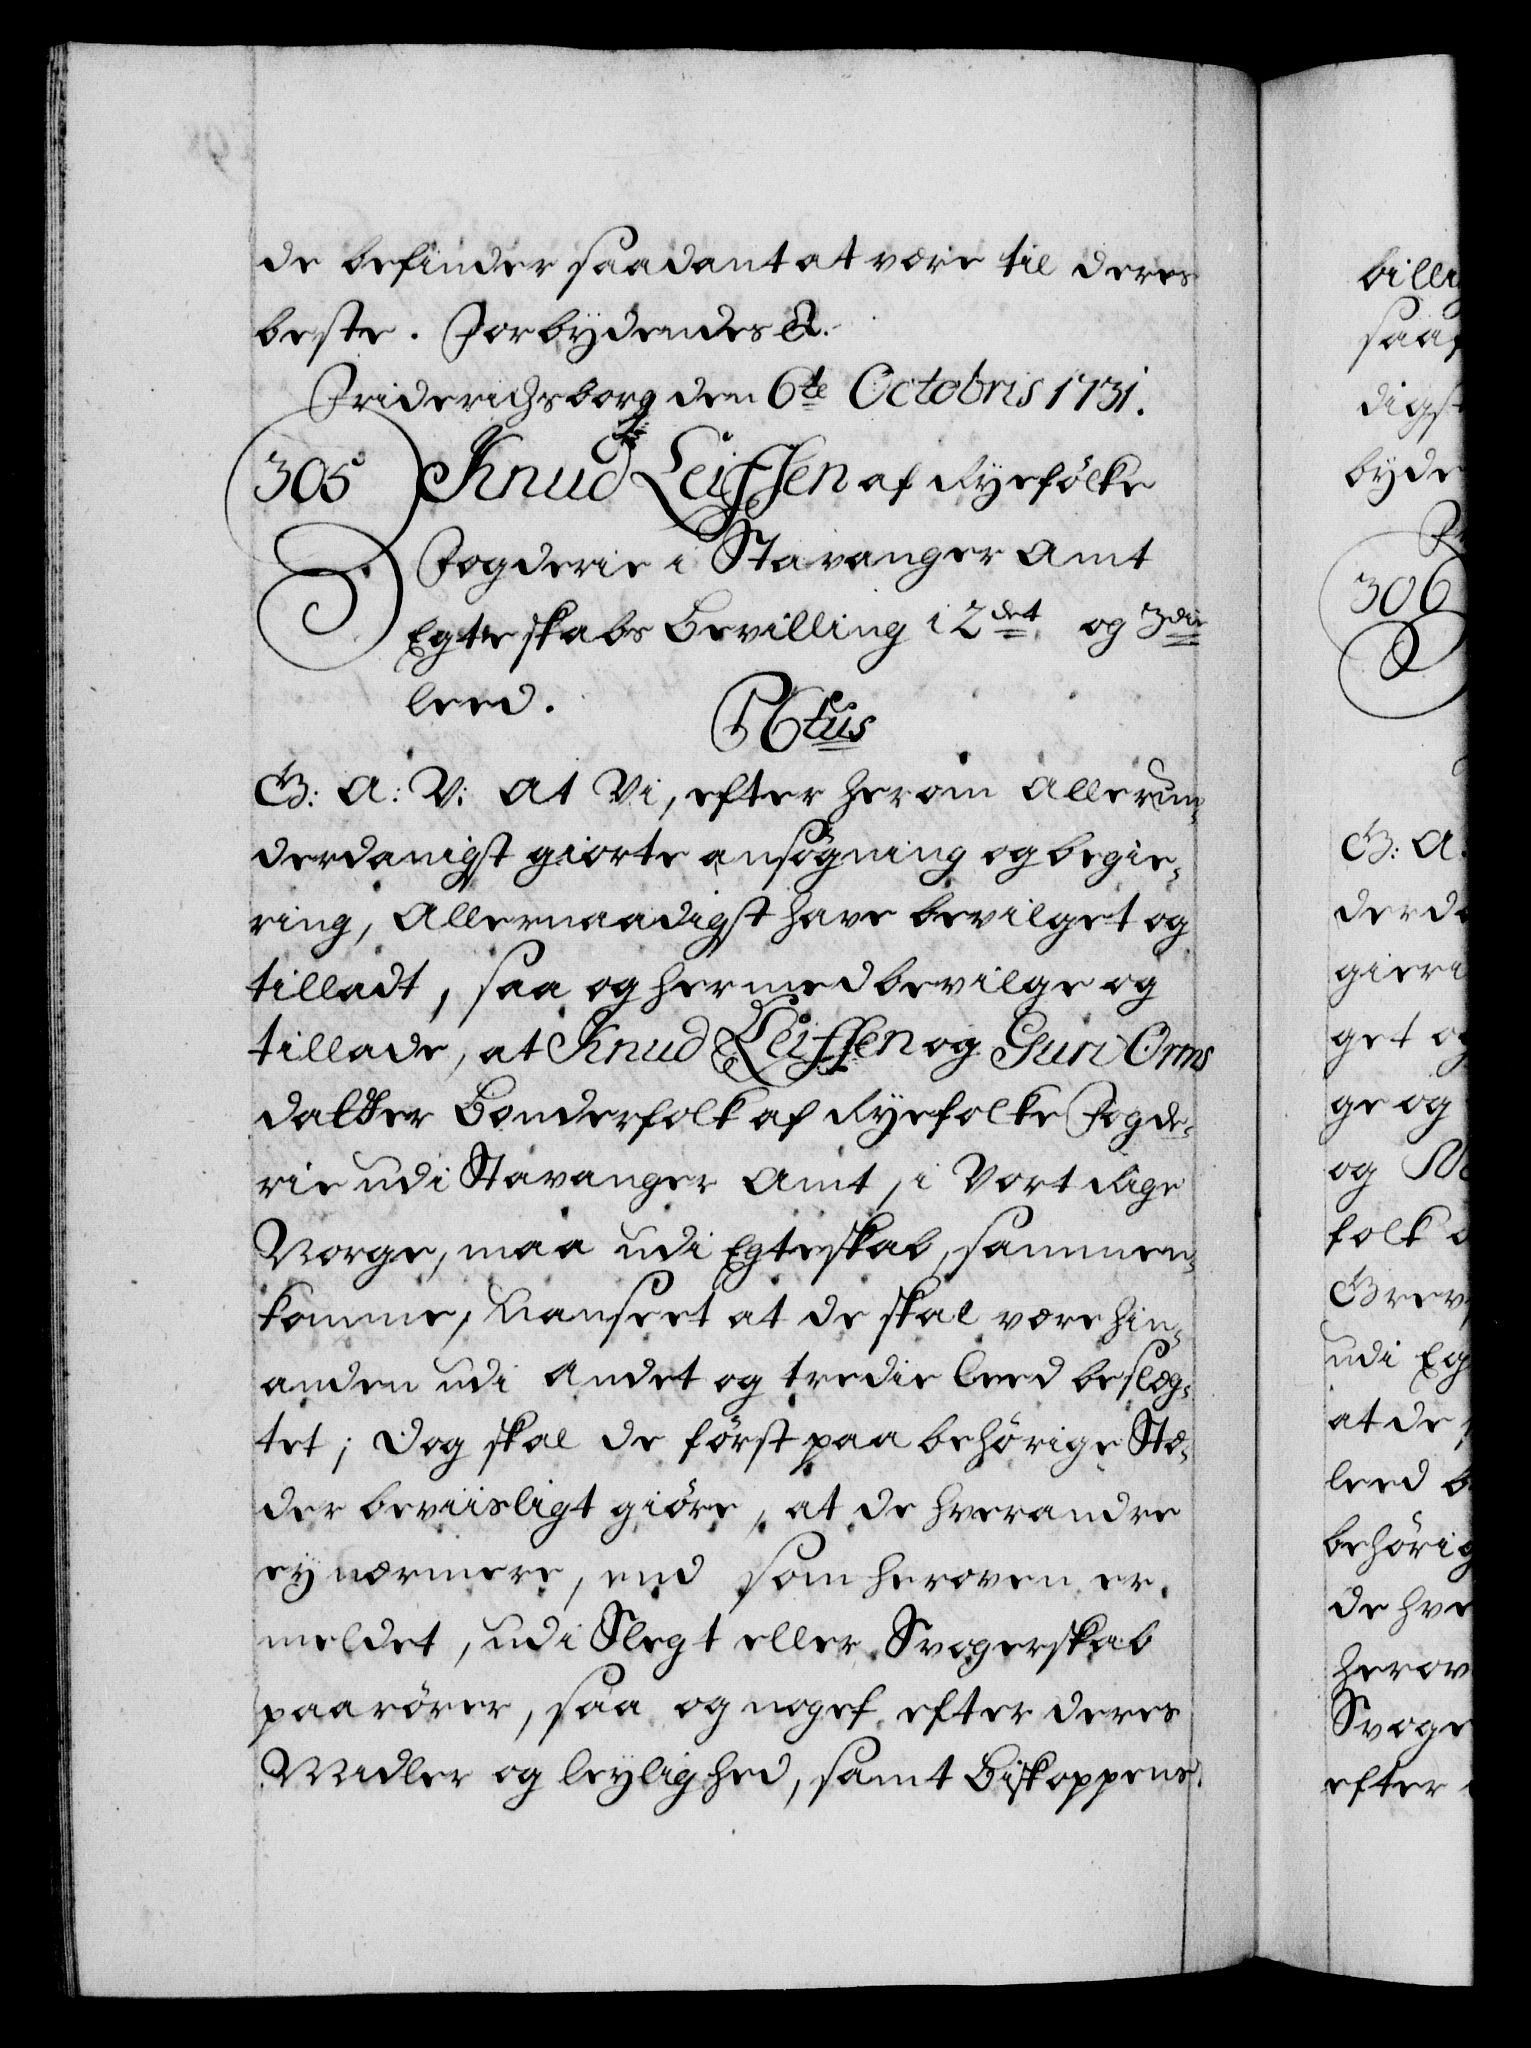 de befinder saadant at være til deres
beste. Forbydendes &.
Friderichsborg den 6te Octobris 1731.
305 Knud Leifsen af Ryefölke
Fogderie i Stavanger Amt
Egteskabs Bevilling i 2det og 3die
leed.
G: A: V: At Vi, efter herom allerun-
derdanigst giorte ansögning og begie-
ring, Allernaadigst have bevilget og
tilladt, saa og hermed bevilge og
tillade, at Knud Leifsen og Guri Orms
datter Bønderfolk af Ryefolke Fogde-
rie udi Stavanger Amt, i Vort Rige
Norge, maa udi Egteskab, sammen-
komme, Uanseet at de skal være hin-
anden udi andet og tredie leed beslæg-
tet; Dog skal de först paa behörige Stæ-
der beviisligt giöre, at de hverandre
ey nærmere, end som heroven er
meldet, udi Slegt eller Svogerskab
paarörer, saa og noget efter deres
Midler og leylighed, samt Biskoppens
billi
saa
digst
byde
306
G: A.
derda
gieri
get og
ge og
og
folk
Grev
udi Eg
at de
leed b
behörig
de hve
herov
Svoge
efter